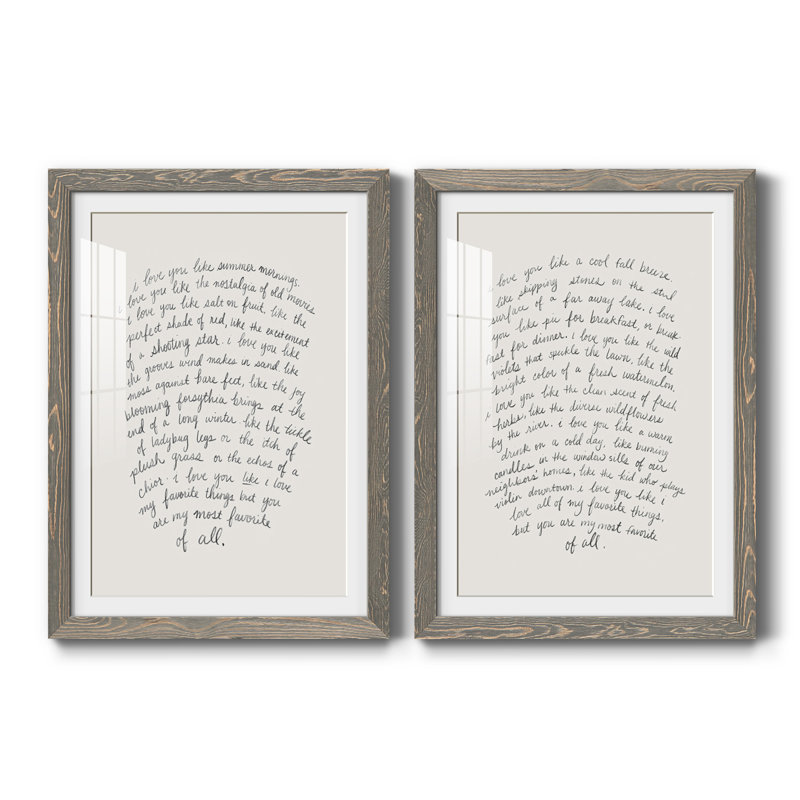 i love you like summer mornings.
i love you like the nostalgia of old movies
i love you like salt on fruit, like the
perfect shade of red, like the excitement
of a shooting star. i love you like
the grooves wind makes in sand like
moss against bare feet, like the joy
blooming forsythia brings at the
end of a long winter like the tickle
of ladybug legs or the itch of
plush grass or the echos of a
chior. i love you like i love
my favorite things but you
are my most favorite
of all.
i love you like a cool fall breeze,
like skipping stones on the still
surface of a far away lake. i love
you like pie for breakfast, or break
fast for dinner. i love you like the wild
violets that speckle the lawn, like the
bright color of a fresh watermelon.
i love you like the clean scent of fresh
herbs, like the diverse wildflowers
by the river. i love you like a warm
drink on a cold day, like burning
candles in the window sills of our
neighbors' homes, like the kid who plays
violin downtown. i love you like i
love all of my favorite things,
but you are my most favorite
of all.